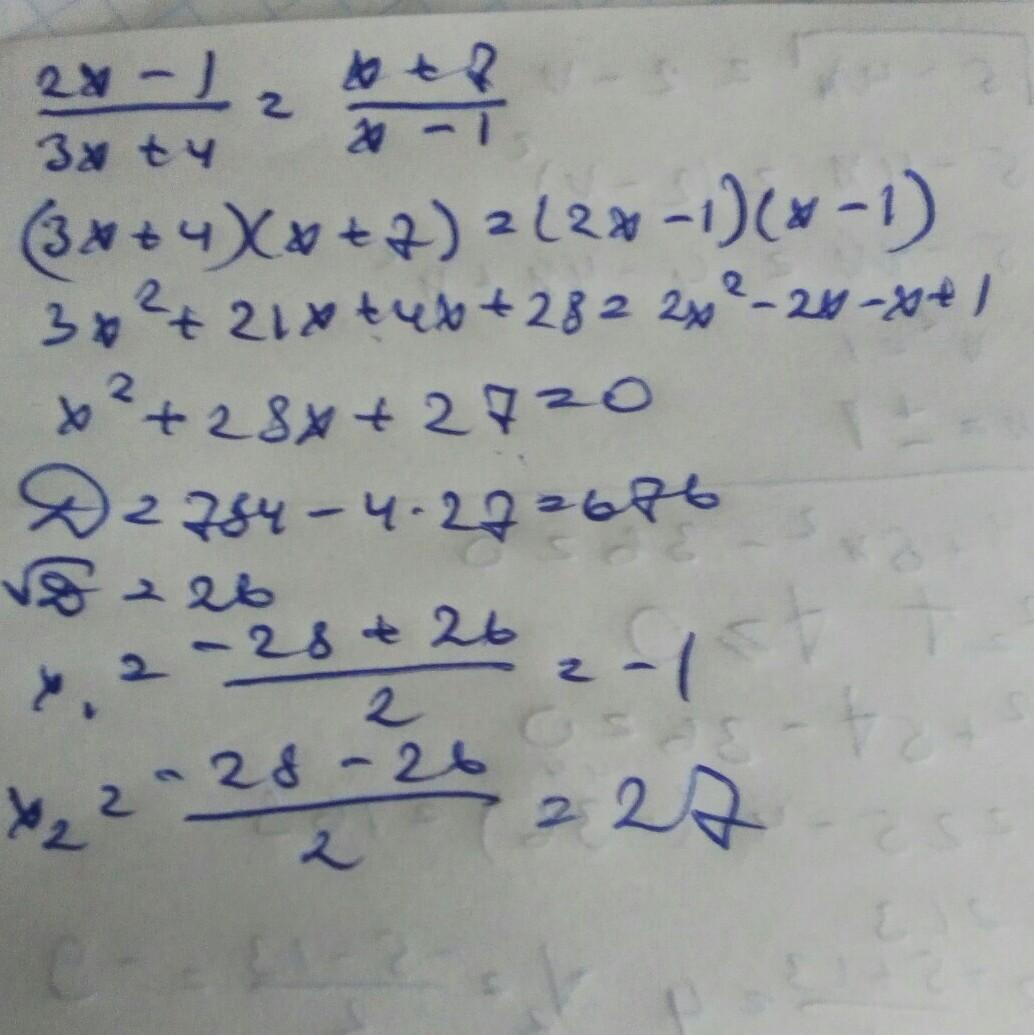 (2x - 1)/(3x + 4) = (x + 7)/(x - 1)
(3x + 4)(x + 7) = (2x - 1)(x - 1)
3x² + 21x + 4x + 28 = 2x² - 2x - x + 1
x² + 28x + 27 = 0
D = 784 - 4 · 27 = 676
√D = 26
x₁ = (-28 + 26)/2 = -1
x₂ = (-28 - 26)/2 = 27